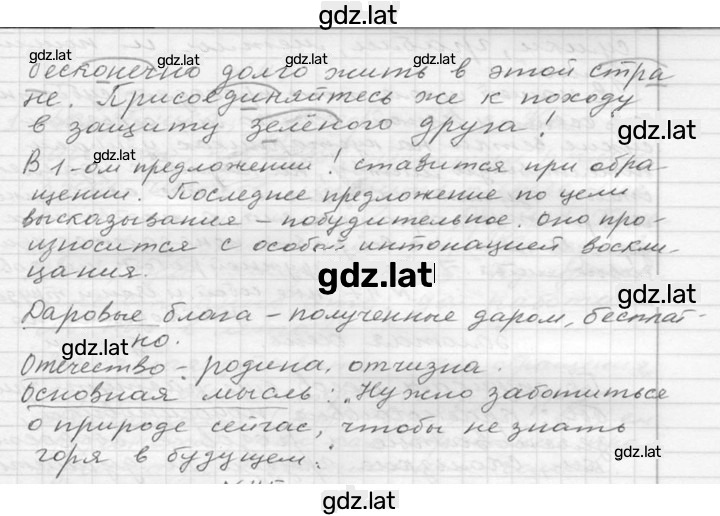 gdz.lat
gdz.lat gdz.lat gdz.lat gdz.lat
бесконечно долго жить в этой стра
не. Присоединяйтесь же к походу
в защиту зелёного друга!
gdz.lat
gdz.lat
В 1-ом предложении ! ставится при обра-
щении. Последнее предложение по цели
высказывания – побудительное. оно про-
износится с особой интонацией воскли-
цания.
gdz.lat
gdz.lat
Даровые блага – полученные даром, бесплат-
но.
gdz.lat
Отечество – родина, отчизна.
Основная мысль: „Нужно заботиться
о природе сейчас, чтобы не знать
горя в будущем."
gdz.lat
gdz.lat